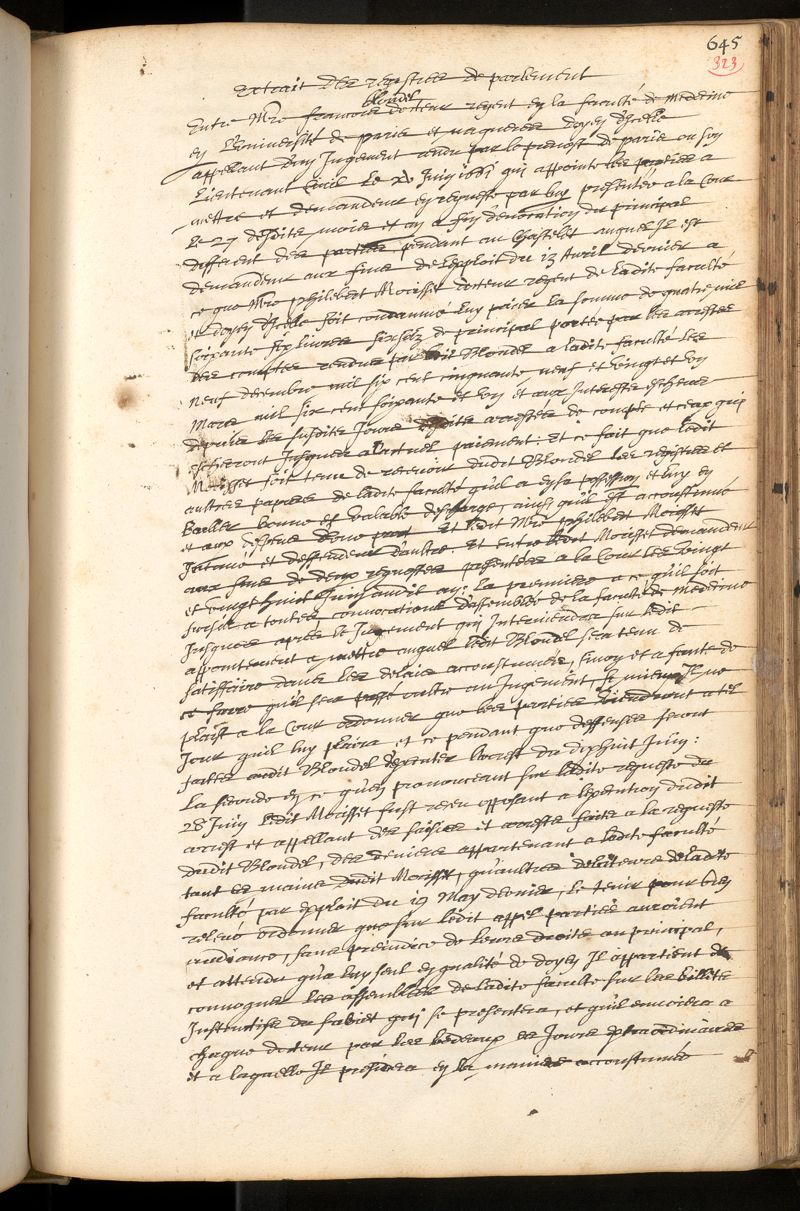 645
323
Extrait des registres de parlement
blondel
Entre Mre francois docteur regent en la faculté de medecine
en l'université de paris et nagueres doyen d'Icelle
appellant d'un Jugement rendu par le prevost de paris ou son
Lieutenant Civil le Juin 1661 qui appointe les parties a
mettre et demandeur en requeste par luy presentée a la Cour
le 27 desdits mois et an a fin d'evocation du principal
different des parties pendant au Chastelet auquel Il est
demandeur aux fins de l'exploit du 13 Avril dernier a
ce que Mre philebert Morisset docteur regent de ladite faculté
et doyen d'Icelle soit condamné luy paier la somme de quatre mil
soixante six livres six solz de principal portée par les arrestez
des comptes rendus par ledit Blondel a ladite faculté les
neuf decembre mil six cent cinquante neuf et vingt et un
Mars mil six cent soixante et un et aux Interestz escheus
depuis les susdits Jours desdits arrestez de compte et ceux qui
escherront Jusques a l'actuel paiement: Et ce fait que ledit
Morisset soit tenu de recevoir dudit Blondel les registres et
aultres papiers de ladite faculté qu'il a en sa possession et luy en
Bailler bonne et valable descharge, ainsi qu'il est accoustumé
et aux despens d'une part Et ledit Mre philebert Morisset
Intimé et deffendeur d'aultre. Et entre ledit Morisset demandeur
aux fins de deux requestes presentées a la Cour les vingt
et vingt huit Juin audit an: la premiere a ce qu'il soit
sursis a toutes convocations d'assemblée de la faculté de medecine
Jusques apres le Jugement qui Interviendra sur ledit
appointement a mettre auquel ledit Blondel sera tenu de
satisfaire dans les delais accoustumés, sinon et a faute de
ce faire qu'il sera passé oultre au Jugement, si mieux Il ne
plaist a la Cour ordonner que les parties viendront a tel
Jour qu'il luy plaira et ce pendant que deffenses seront
faites audit Blondel d'executer l'arrest du dixhuit Juin:
La seconde en ce qu'en prononceant sur ladite requeste du
28 Juin ledit Morisset fust receu opposant a l'execution dudit
arrest et appellant des saisies et arrests faits a la requeste
dudit Blondel, des deniers appartenant a ladite faculté
tant es mains dudit Morisset, qu'aultres debiteurs de ladite
faculté par exploit du 19 May dernier, le tenir pour bien
relevé ordonner que sur ledit appel parties auroient
audience, sans prejudice de leurs droits au principal,
et attendu qu'a luy seul en qualité de doyen Il appartient de
convoquer les assemblées de ladite faculté sur les billets
Instructifs du subiet qui se presentera, et qu'il envoiera a
chaque docteur par les bedeaux es Jours extraordinaires
et a laquelle Il presidera en la maniere accoustumée